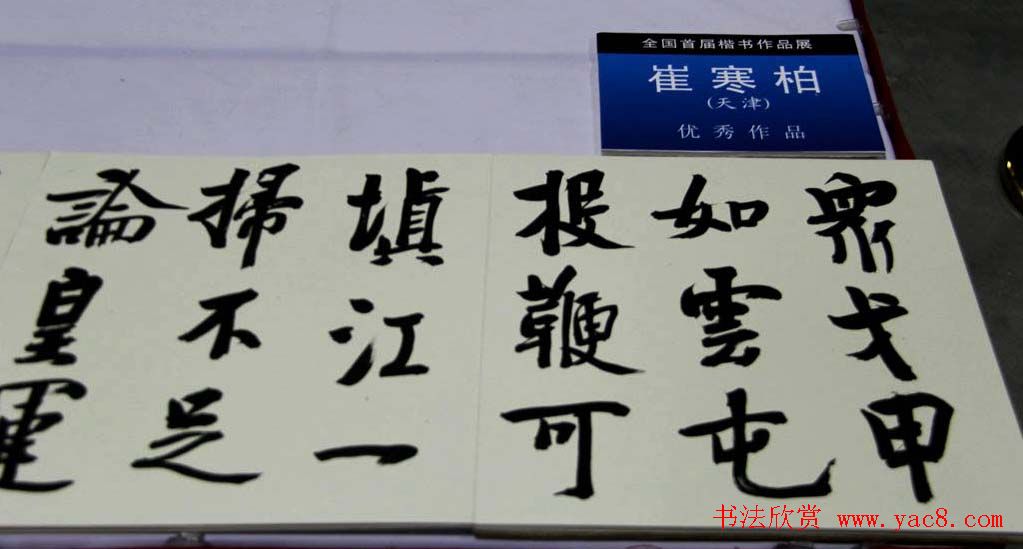 全国首届楷书作品展
崔寒柏
(天津)
优秀作品
眾戈甲
如雲屯
投鞭可
填江一
掃不足
論皇運
书法欣赏 www.yac8.com